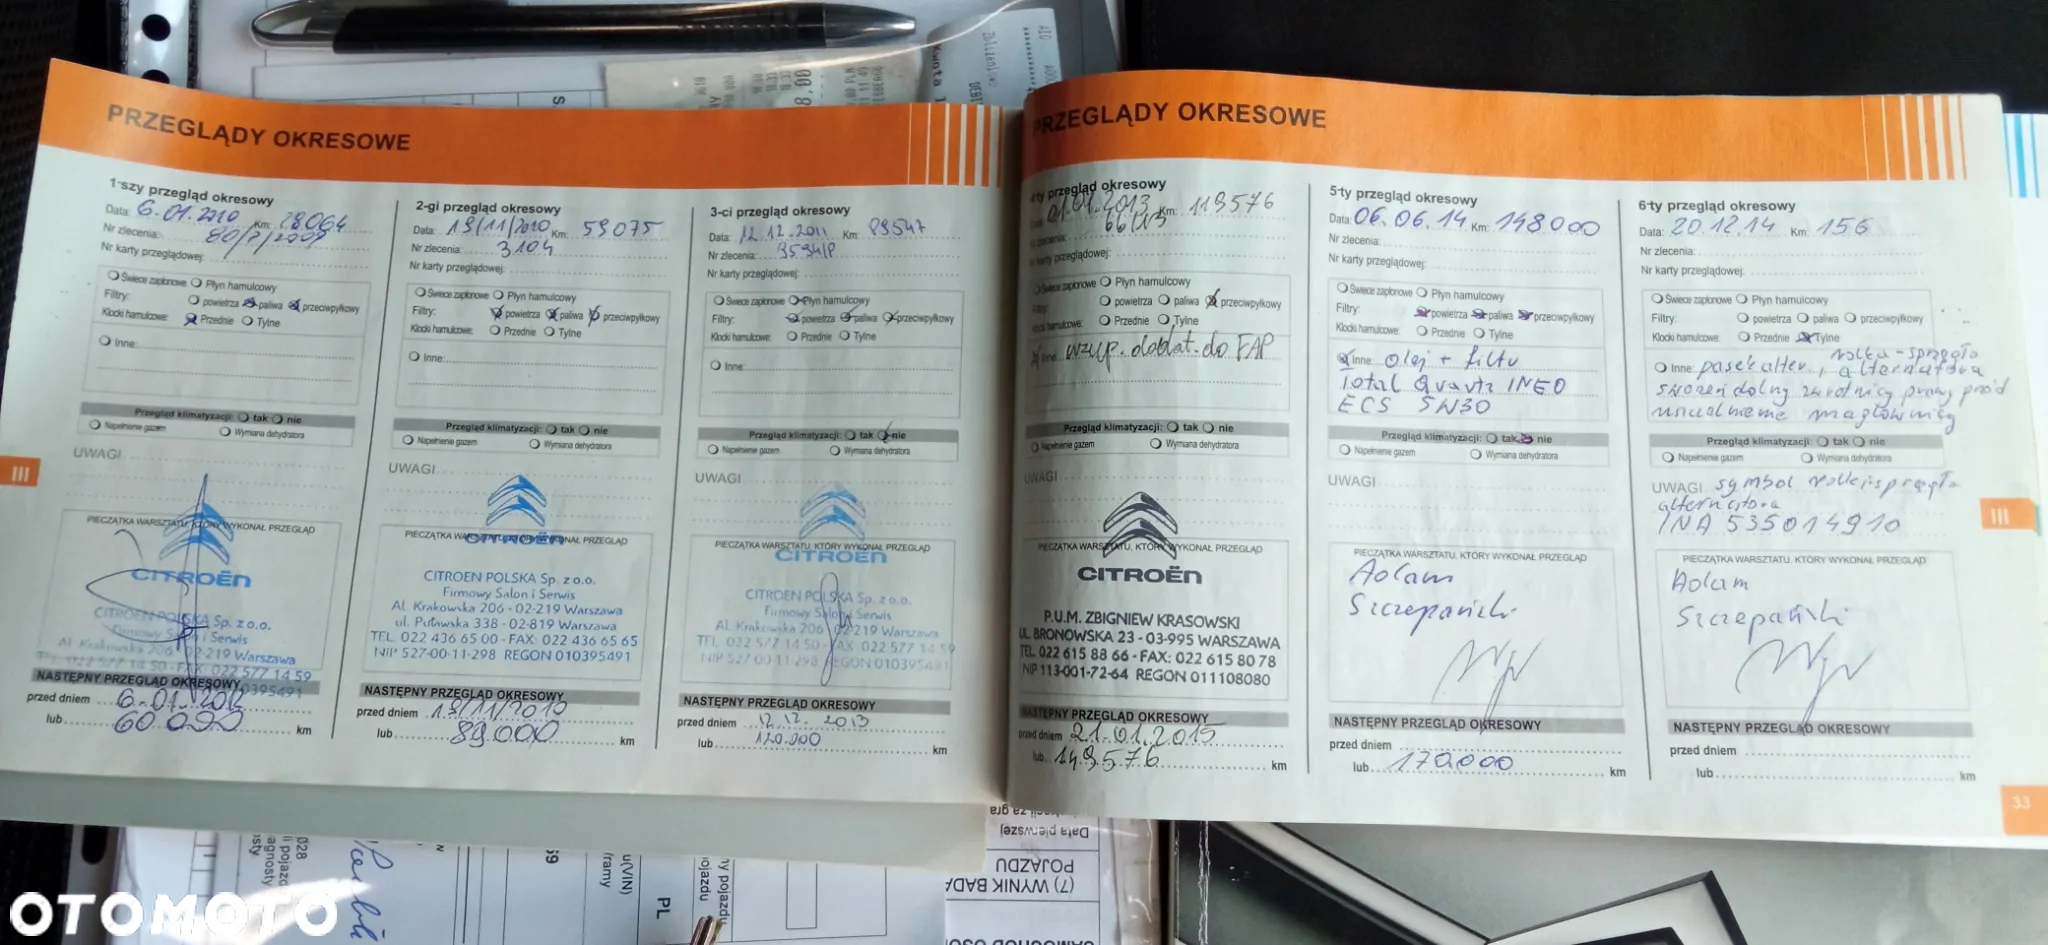 PRZEGLĄDY OKRESOWE
1-szy przegląd okresowy
Data: 6.01.2010 Km: 28064
Nr zlecenia: 80/7/2009
Nr karty przeglądowej:
Świece zapłonowe Płyn hamulcowy
Filtry: powietrza paliwa przeciwpyłkowy
Klocki hamulcowe: Przednie Tylne
Inne:
Przegląd klimatyzacji: tak nie
Napełnienie gazem Wymiana dehydratora
UWAGI
PIECZĄTKA WARSZTATU, KTÓRY WYKONAŁ PRZEGLĄD
CITROËN
CITROEN POLSKA Sp. z o.o.
Firmowy Salon i Serwis
Al. Krakowska 206 - 02-219 Warszawa
TEL. 022 577 14 50 - FAX: 022 577 14 59
010395491
NASTĘPNY PRZEGLĄD OKRESOWY
przed dniem 6.01.2012
lub 60 000 km
2-gi przegląd okresowy
Data: 19/11/2010 Km: 59075
Nr zlecenia: 3104
Nr karty przeglądowej:
Świece zapłonowe Płyn hamulcowy
Filtry: powietrza paliwa przeciwpyłkowy
Klocki hamulcowe: Przednie Tylne
Inne:
Przegląd klimatyzacji: tak nie
Napełnienie gazem Wymiana dehydratora
UWAGI
PIECZĄTKA WARSZTATU, KTÓRY WYKONAŁ PRZEGLĄD
CITROËN
CITROEN POLSKA Sp. z o.o.
Firmowy Salon i Serwis
Al. Krakowska 206 - 02-219 Warszawa
ul. Puławska 338 - 02-819 Warszawa
TEL. 022 436 65 00 - FAX: 022 436 65 65
NIP 527-00-11-298 REGON 010395491
NASTĘPNY PRZEGLĄD OKRESOWY
przed dniem 19/11/2010
lub 89000 km
3-ci przegląd okresowy
Data: 12.12.2011 Km: 89547
Nr zlecenia:
Nr karty przeglądowej:
Świece zapłonowe Płyn hamulcowy
Filtry: powietrza paliwa przeciwpyłkowy
Klocki hamulcowe: Przednie Tylne
Inne:
Przegląd klimatyzacji: tak nie
Napełnienie gazem Wymiana dehydratora
UWAGI
PIECZĄTKA WARSZTATU, KTÓRY WYKONAŁ PRZEGLĄD
CITROËN
CITROEN POLSKA Sp. z o.o.
Firmowy Salon i Serwis
Al. Krakowska 206 - 02-219 Warszawa
TEL. 022 577 14 50 FAX: 022 577 14 59
NIP 527 00 11 298 REGON 010395491
NASTĘPNY PRZEGLĄD OKRESOWY
przed dniem 12.12.2013
lub 120.000 km
III
PRZEGLĄDY OKRESOWE
4-ty przegląd okresowy
01.2013 Km: 119576
zlecenia:
Nr karty przeglądowej:
Świece zapłonowe Płyn hamulcowy
Filtry: powietrza paliwa przeciwpyłkowy
hamulcowe: Przednie Tylne
Inne: uzup. dodat. do FAP
Przegląd klimatyzacji: tak nie
Napełnienie gazem Wymiana dehydratora
UWAGI
PIECZĄTKA WARSZTATU, KTÓRY WYKONAŁ PRZEGLĄD
CITROËN
P.U.M. ZBIGNIEW KRASOWSKI
UL. BRONOWSKA 23 - 03-995 WARSZAWA
TEL. 022 615 88 66 - FAX: 022 615 80 78
NIP 113-001-72-64 REGON 011108080
NASTĘPNY PRZEGLĄD OKRESOWY
przed dniem 21.01.2015
lub 149576 km
5-ty przegląd okresowy
Data: 06.06.14 Km: 148000
Nr zlecenia:
Nr karty przeglądowej:
Świece zapłonowe Płyn hamulcowy
Filtry: powietrza paliwa przeciwpyłkowy
Klocki hamulcowe: Przednie Tylne
Inne: olej + filtr
Total Quartz INEO
ECS 5W30
Przegląd klimatyzacji: tak nie
Napełnienie gazem Wymiana dehydratora
UWAGI
PIECZĄTKA WARSZTATU, KTÓRY WYKONAŁ PRZEGLĄD
Adam
Szczepański
NASTĘPNY PRZEGLĄD OKRESOWY
przed dniem
lub 170.000 km
6-ty przegląd okresowy
Data: 20.12.14 Km: 156
Nr zlecenia:
Nr karty przeglądowej:
Świece zapłonowe Płyn hamulcowy
Filtry: powietrza paliwa przeciwpyłkowy
Klocki hamulcowe: Przednie Tylne
rolka-sprzęgło
Inne: pasek alter., alternatora
sworzeń dolny zwrotnicy prawy przód
uszczelnienie maglownicy
Przegląd klimatyzacji: tak nie
Napełnienie gazem Wymiana dehydratora
UWAGI symbol rolki-sprzęgła
alternatora
INA 535014910
PIECZĄTKA WARSZTATU, KTÓRY WYKONAŁ PRZEGLĄD
Adam
Szczepański
NASTĘPNY PRZEGLĄD OKRESOWY
przed dniem
lub km
III
33
Data pierwszej
POJAZDU
(7) WYNIK BADA
PL
OTOMOTO